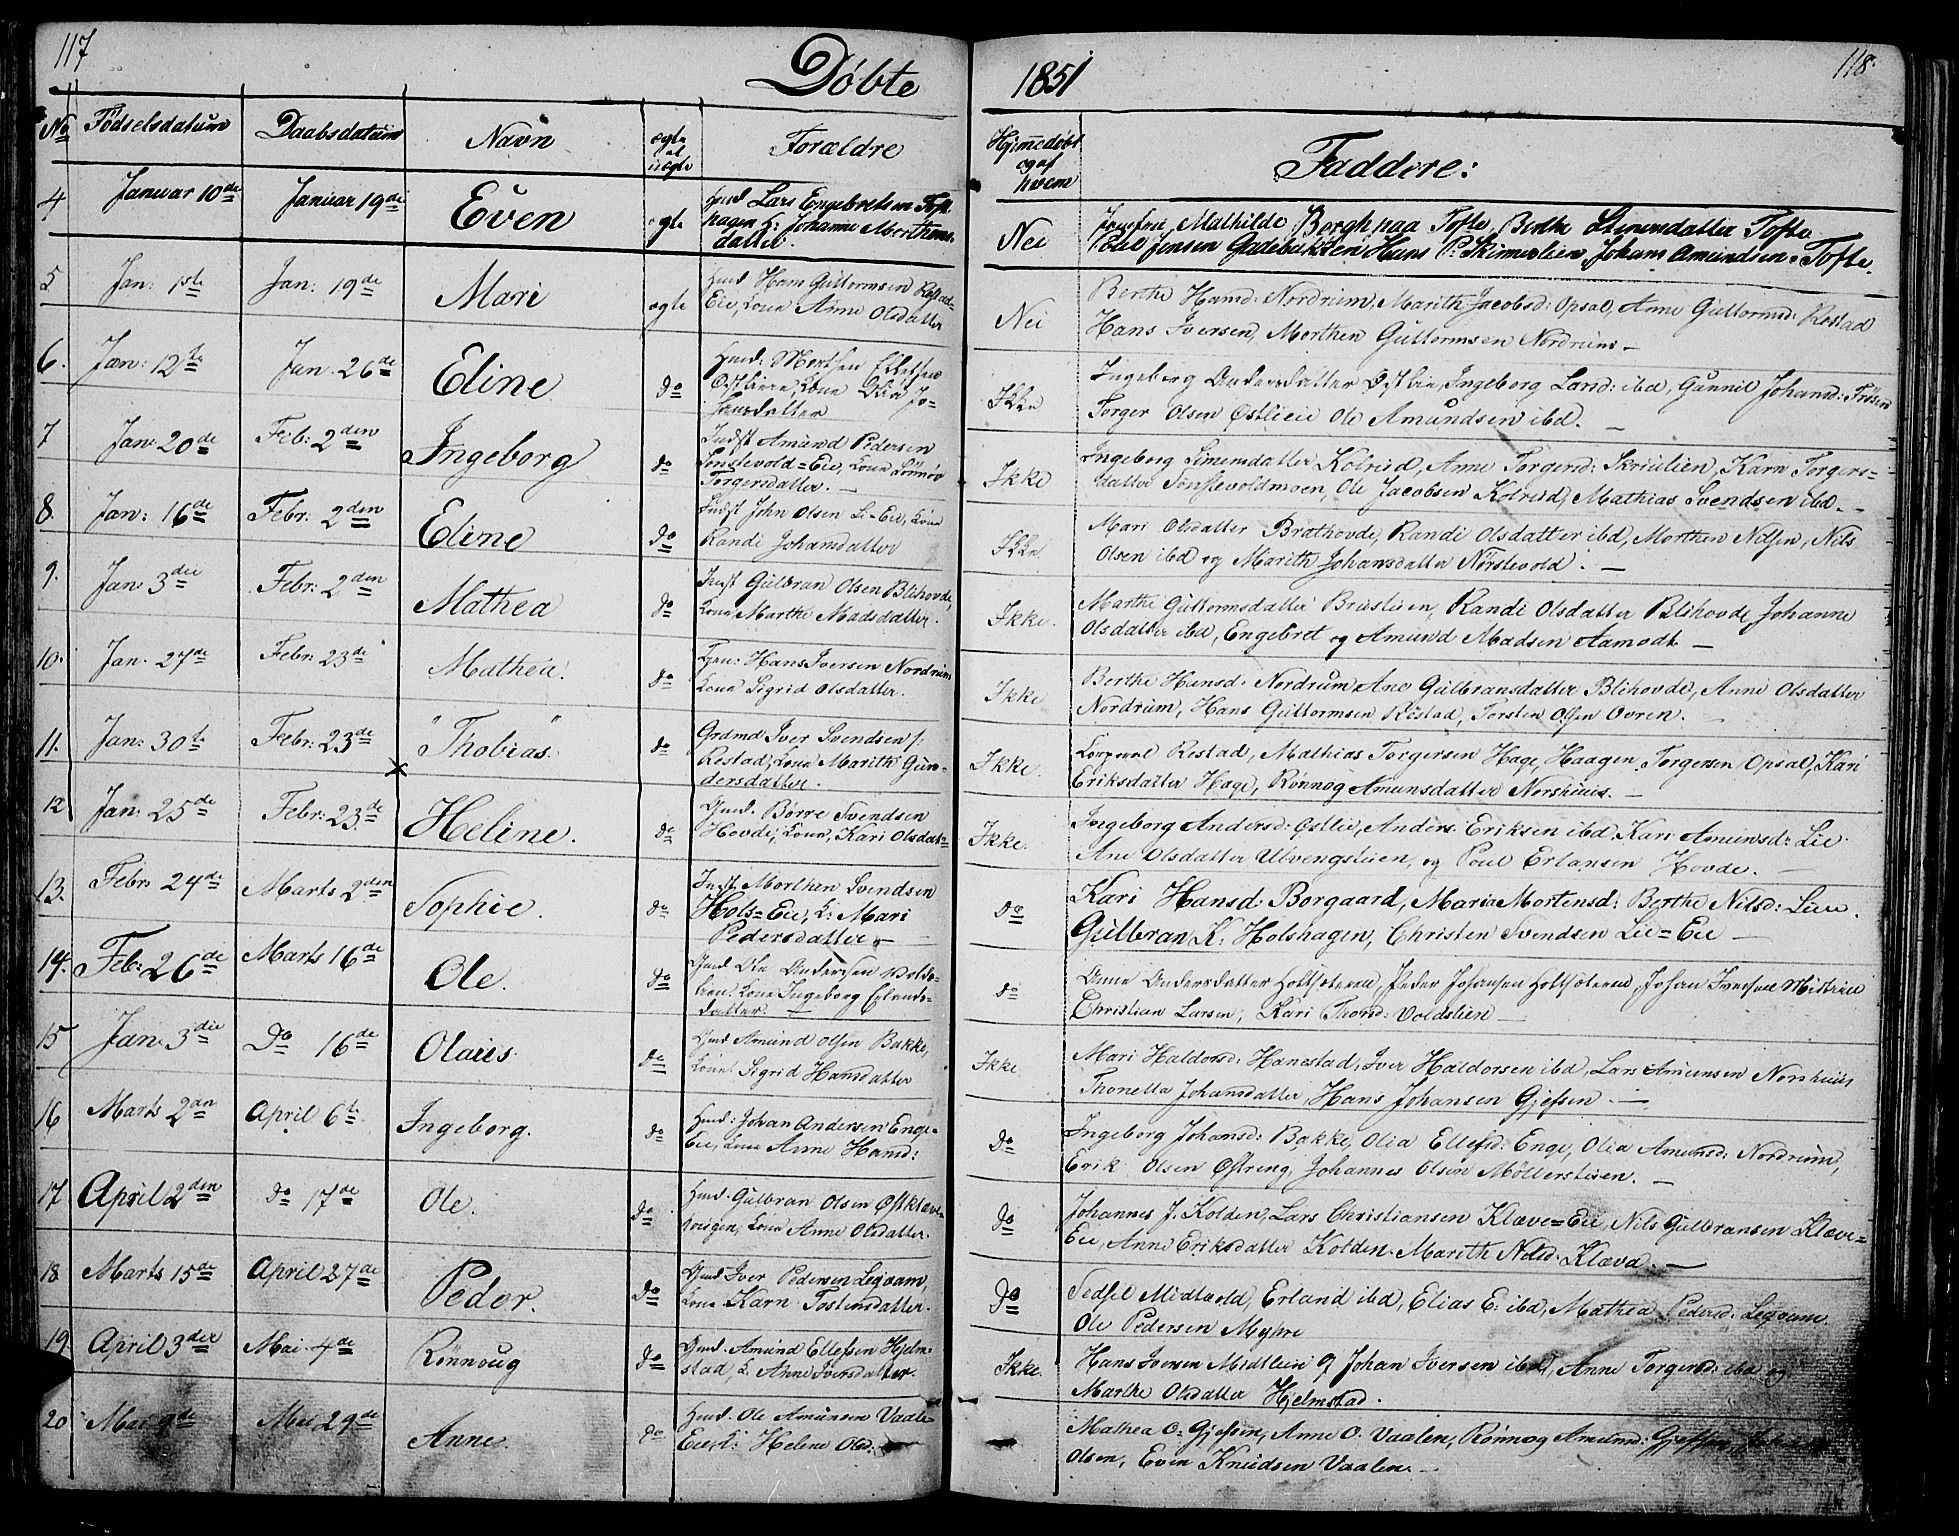 117
Døbte
1851
118.
No
Fødselsdatum
Daabsdatum
Navn
ægte
el
uægte
Forældre
Hjemmedøbt
og af
hvem
Faddere:
4
Januar 10de
Januar 19de
Even
ægte
Lars Engebretsen Toft
hagen K: Johanne Morthens
datter.
Nei
Jomfru Mathilde Bergh paa Tofte, Berthe Simensdatter Tofte
Jensen Hans P. Skimeslien Johans Amundsen Tofte.
5
Jan: 1ste
Jan: 19de
Mari
ægte
Hans Guttormsen Restad
Eie, Kone Anne Olsdatter
Nei
Berthe Hansd: Nordrum, Marith Jacobsd: Opsal, Anne Guttormsd: Restad
Hans Iversen, Morthen Guttormsen Nordrum –
6.
Jan: 12te
Jan. 26de
Eline
do
Morthen
Kone Olia Jo=
hansdatter
Ikke
Ingeborg Andersdatter Østlie, Ingeborg Land: ibd, Gunnil Johansd:
Torger Olsen Østlieie Ole Amundsen ibd. –
7
Jan. 20de
Feb: 2den
Ingeborg
do
Indst Amund Pedersen
Eie, Kone Rønnøv
Torgersdatter. –
Ikke
Ingeborg Simensdatter Kolrud, Anne Torgersd: Skriulien, Karn Torgers=
datter Ole Jacobsen Kolrud, Mathias Svendsen ibd. –
8.
Jan: 16de
Febr: 2den
Eline
do
Indst John Olsen Li-Eie, Kone
Randi Johansdatter
Ikke
Mari Olsdatter Brathovde, Randi Olsdatter ibd, Morthen Nilsen, Nils
Olsen ibd og Marith Johansdatter Nørstevold. –
9.
Jan: 3die
Febr: 2den
Mathea
do
Indst Gulbran Olsen Blihovde,
Kone Marthe Madsdatter.
Ikke.
Marthe Guttormsdatter Brustuen, Randi Olsdatter Blihovde Johanne
Olsdatter ibd, Engebret og Amund Madsen Aamodt –
10.
Jan. 27de
Febr: 23de
Mathea.
do
Hans Iversen Nordrum
Kone Sigrid Olsdatter.
Ikke
Berthe Hansd. Nordrum Ane Gulbransdatter Blihovde, Anne Olsdatter
Nordrum, Hans Guttormsen Restad, Torsten Olsen Ovren. –
11.
Jan: 30te
Febr: 23de
"Thobias."
do
Grdmd Iver Svendsen
Restad, Kone Marith Gun=
dersdatter.
Ikke.
Restad, Mathias Torgersen Hage, Haagen Torgersen Opsal, Kari
Eriksdatter Hage, Rønnog Amunsdatter Norshuus. –
12
Jan: 25de
Febr: 23de
Heline.
do
Gmd. Børre Svendsen
Hovde, Kone, Kari Olsdat=
Ikke.
Ingeborg Andersd: Østlie, Anders Eriksen ibd, Kari Amunsd: Lie
Ane Olsdatter Ulvengslien, og Poul Erlansen Hovde. –
13.
Febr: 24de
Marts 2den
Sophie.
do
Indst Morthen Svendsen
Hols=Eie, K: Mari
Pedersdatter –
do
Kari Hansd: Borgaard, Maria Mortensd: Berthe Nilsd: Liee.
Gulbran K. Holshagen, Christen Svendsen Lie=Eie –
14.
Feb: 26de
Marts 16de
Ole.
do
Gmd Ole Andersen Volds=
lien. Kone Ingeborg Erlands=
datter –
do
Anne Andersdatter Peder Johansen Johan Iversen
Christian Larsen, Kari Thorsd: Voldslien –
15
Jan. 3die
Do 16de
Olaus
do
Gmd Amund Olsen Bakke,
Kone: Sigrid Hansdatter
Ikke
Mari Haldorsd: Hanestad, Iver Haldorsen ibd, Lars Amunsen Norshuus
Thonetta Johansdatter, Hans Johansen Gjefsen. –
16
Marts 2den
April 6te
Ingeborg.
do
Husd: Johan Andersen Enge=
Eie, Kone Anne Hansd:
do
Ingeborg Johansd: Bakke, Olia Ellefsd: Enge, Olia Amunsd: Nordrum,
Erik Olsen Østreng, Johannes Olsen Møllerstuen. –
17
April 2den
do 17de
Ole.
do
Husd. Gulbran Olsen
Kone Anne Olsdatter.
do
Johannes J. Kolden, Lars Christiansen Kleve=Eie, Nils Gulbransen Kleve=
Eie, Anne Eriksdatter Kolden. Marith Nilsd. Kleva. –
18
Marts 15de
April 27de
Peder.
do
Gmd Iver Pedersen Legvam,
Kone Karn Tostensdatter.
do
Sedsel Midtvold, Erland ibd, Elias E: ibd, Mathea Pedersd: Legvam
Ole Pedersen Myhre
19
April 3die
Mai 4de
Rønnoug
do
Gmd. Amund Ellefsen Hjelm=
stad, K. Anne Iversdatter.
Ikke.
Hans Iversen Midtlien og Johan Iversen ibd, Anne Torgersd: ibd og
Marthe Olsdatter Hjelmstad.
20
Mai 9de
Mai 29de
Anne.
do
Husd. Ole Amunsen Vaale=
Eie K: Helene Olsd:
Mathea O. Gjefsen, Anne O. Vaalen, Rønnog Amunsd: Gjefsen,
Olsen, Even Knudsen Vaalen. –